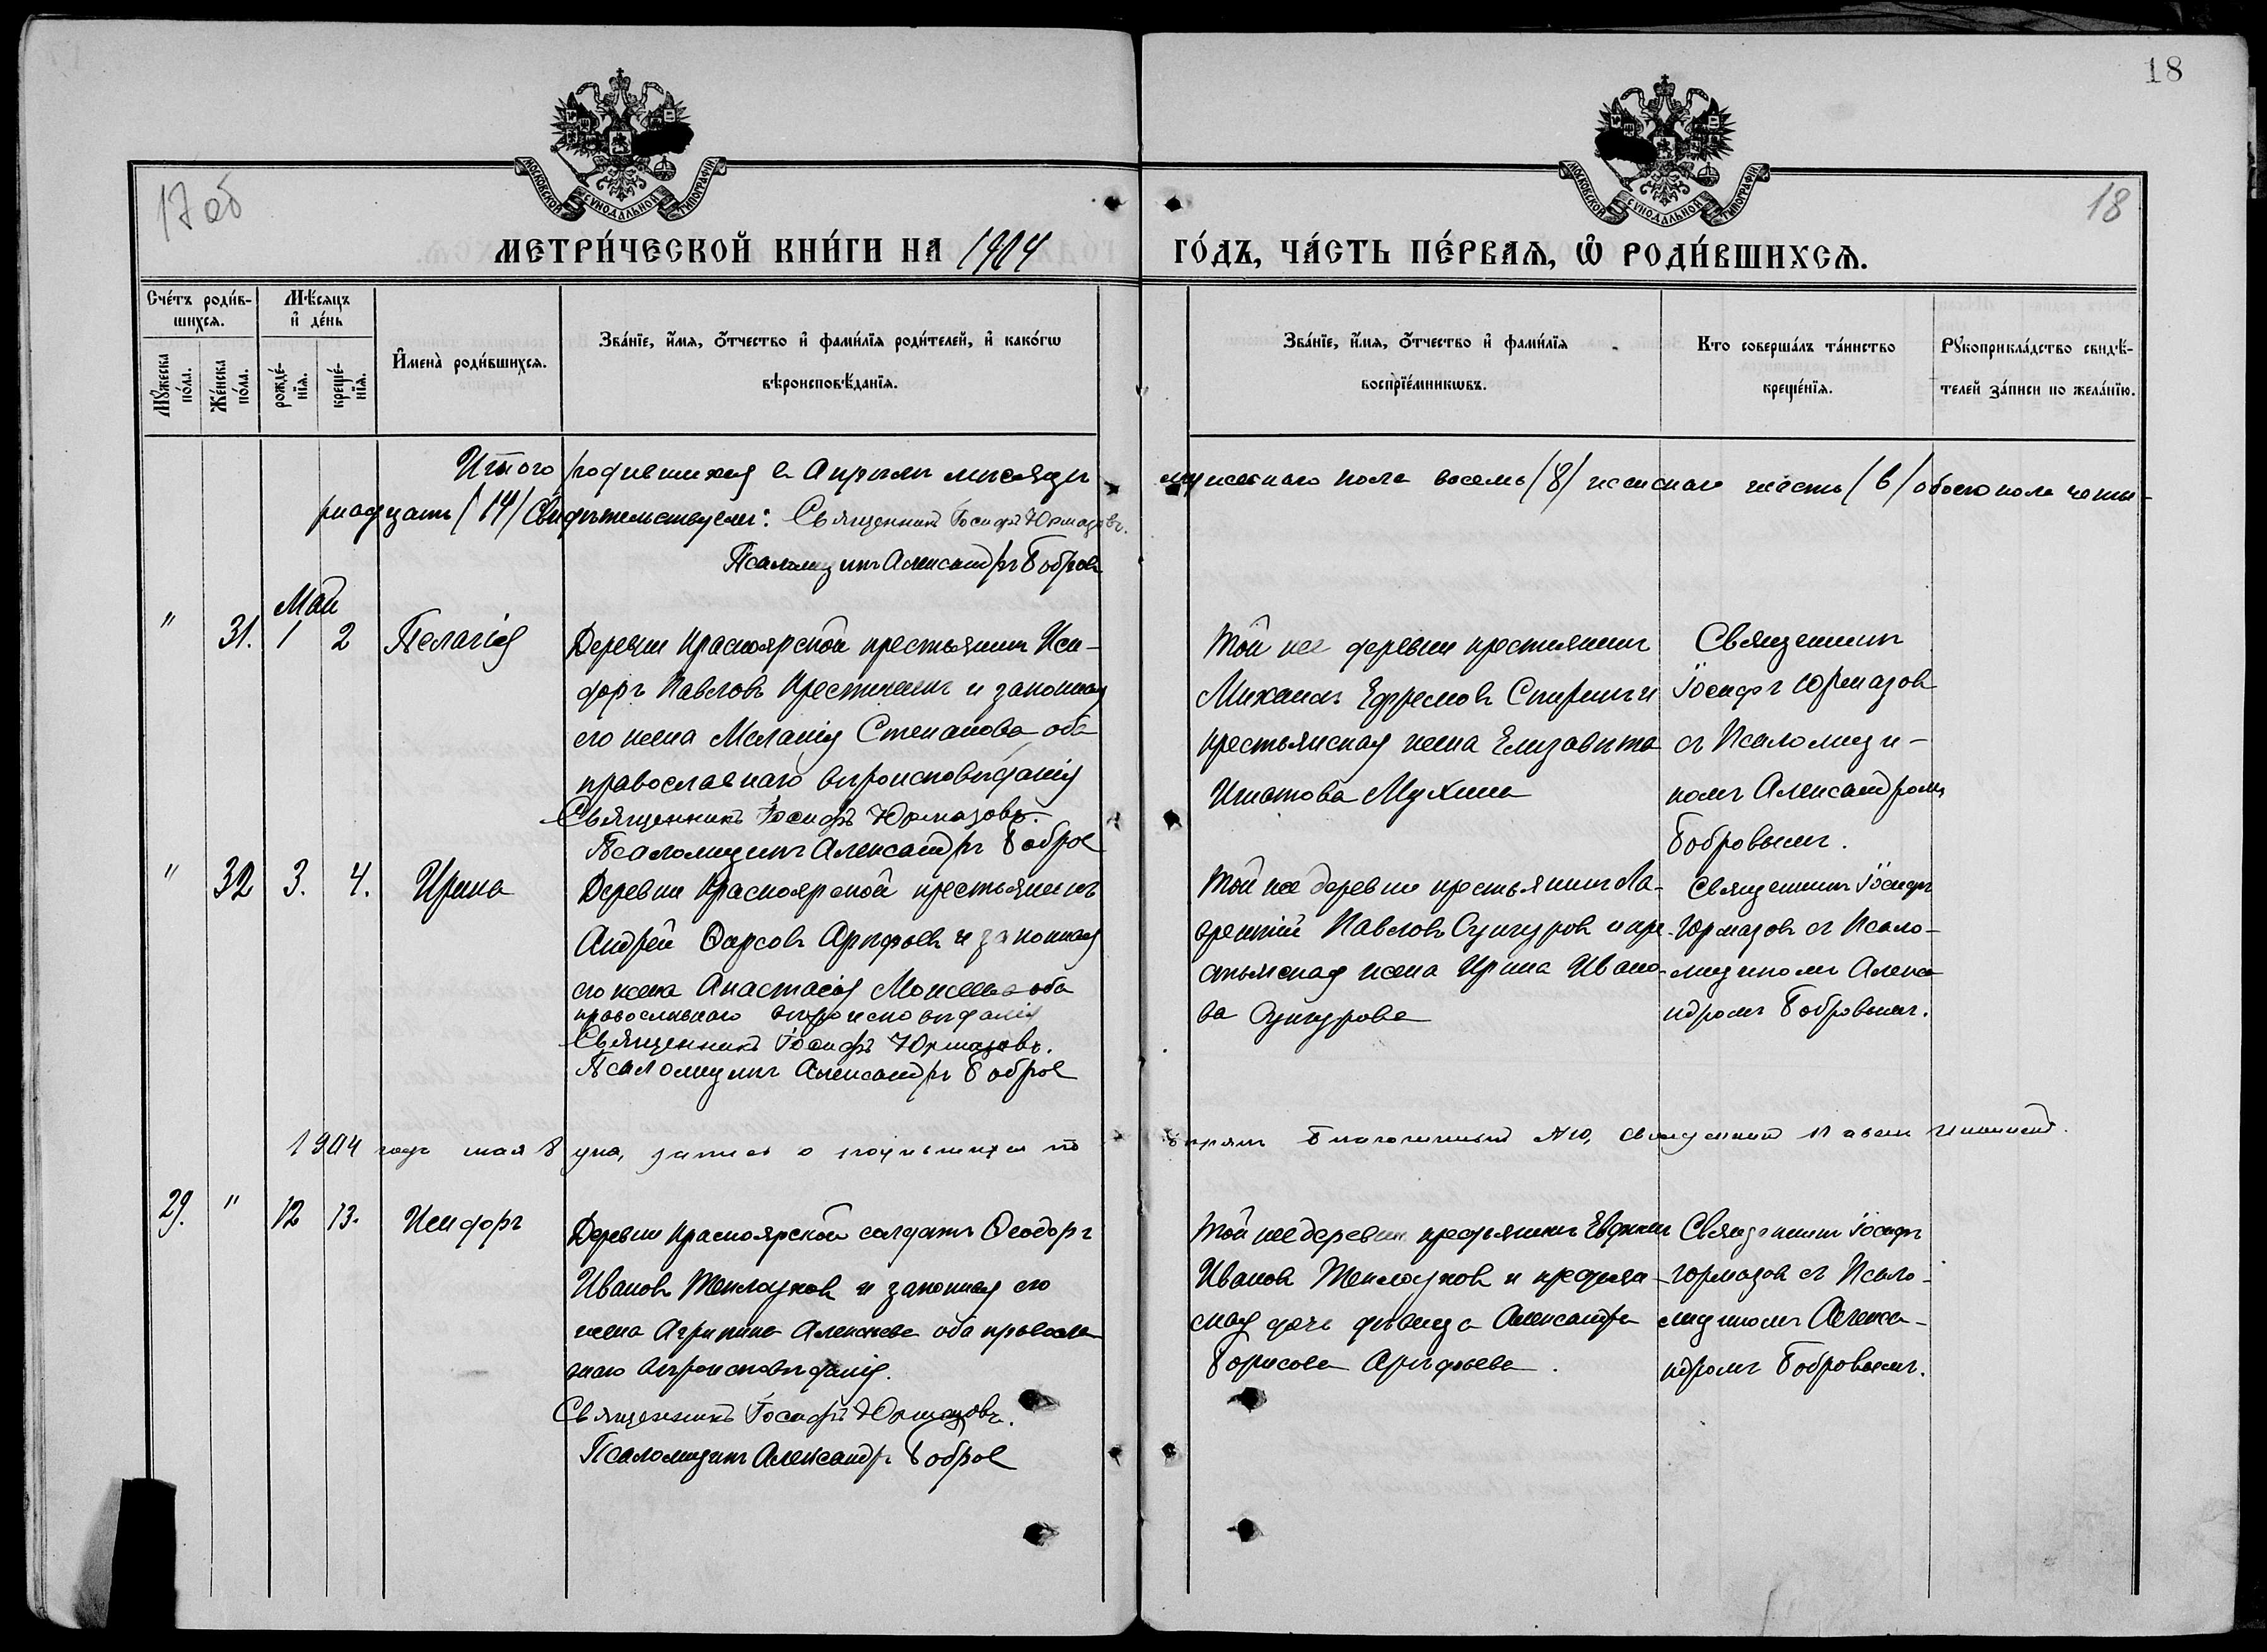 18
17 об
18
МОСКОВСКОЙ СѴНОДАЛЬНОЙ ТИПОГРАФІИ
МОСКОВСКОЙ СѴНОДАЛЬНОЙ ТИПОГРАФІИ
МЕТРИ́ЧЕСКОЙ КНИ́ГИ НА 1904 ГО́ДЪ, ЧА́СТЬ ПЕ́РВАѦ, Ѡ҆ РОДИ́ВШИХСѦ.
Сче́тъ роди́в-
шихсѧ.
Мѣ́сяцъ
и҆ де́нь
Мꙋ́жеска
по́ла.
Же́нска
по́ла.
рожде́-
нїѧ.
креще́-
нїѧ.
И҆мена̀ роди́вшихсѧ.
Зва́нїе, и҆́мѧ, ѻ҆́тчество и҆ фами́лїѧ роди́телей, и҆ како́гѡ
вѣроисповѣ́данїѧ.
Зва́нїе, и҆́мѧ, ѻ҆́тчество и҆ фами́лїѧ
воспрїе́мникѡвъ.
Кто соверша́лъ та́инство
креще́нїѧ.
Рꙋкоприкла́дство свидѣ́-
телей за́писи по жела́нїю.
Итого родившихся въ Апрѣлѣ мѣсяцѣ мужескаго пола восемь /8/ женскаго шесть /6/ обоего пола четы-
рнадцать /14/ Свидѣтельствуемъ: Священникъ Іосифъ Юрмазовъ.
Псаломщикъ Александръ Бобровъ
Май
" 31. 1 2 Пелагія
Деревни Красноярской крестьянинъ Иси-
доръ Павловъ и законная
его жена Меланія Степанова оба
православнаго вѣроисповѣданія
Священникъ Іосифъ Юрмазовъ.
Псаломщикъ Александръ Бобров
Той же деревни крестьянинъ
Михаилъ Ефремовъ Спиринъ и
крестьянская жена Елизавета
Игнатова Мухина
Священникъ
Іосифъ Юрмазов
съ Псаломщи-
комъ Александромъ
Бобровымъ.
" 32 3. 4. Ирина
Деревни Красноярской крестьянинъ
Андрей Фирсовъ Арефьевъ и законная
его жена Анастасія Моисеева оба
православнаго вѣроисповѣданія
Священникъ Іосифъ Юрмазовъ.
Псаломщикъ Александръ Бобров
Той же деревни крестьянинъ Ла-
врентій Павловъ Сунгуров и кре-
стьянская жена Ирина Ивано-
ва Сунгурова
Священникъ Іосифъ
Юрмазовъ съ Псало-
мщикомъ Алекса-
ндромъ Бобровымъ.
1904 года мая 8 дня, запись о родившихся по-
вѣрялъ Благочинный №10, священникъ Павелъ
29. " 12 13. Исидоръ
Деревни Красноярской солдатъ Ѳеодоръ
Ивановъ Теплоуховъ и законная его
жена Агрипина Алексѣева оба православ
наго вѣроисповѣданія.
Священникъ Іосифъ Юрмазовъ.
Псаломщикъ Александръ Бобров
Той же деревни крестьянинъ Евфимъ
Ивановъ Теплоуховъ и крестьян-
ская дочь дѣвица Александра
Борисова Арефьева.
Священникъ Іосифъ
Юрмазов съ Псало-
мщикомъ Алекса-
ндромъ Бобровымъ.